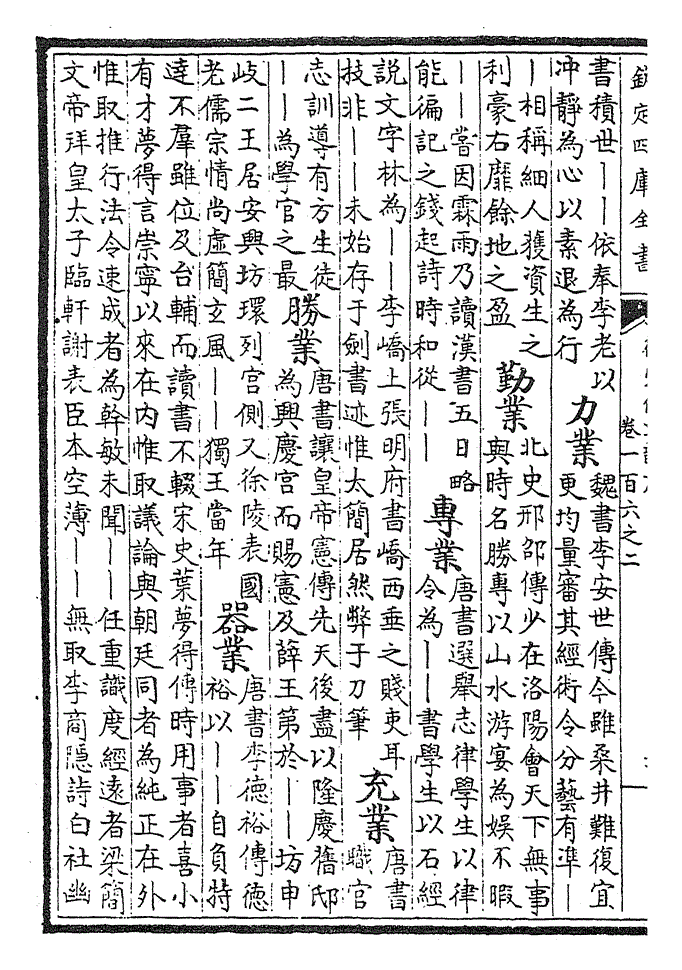 欽定四庫全書
卷一百六之二
書積世——依奉李老以
沖靜為心以素退為行
力業
魏書李安世傳今雖桑井難復宜
更均量審其經術令分藝有準—
—相稱細人獲資生之
利豪右靡餘地之盈
勤業
北史邢邵傳少在洛陽會天下無事
與時名勝專以山水游宴為娛不暇
——嘗因霖雨乃讀漢書五日略
能徧記之錢起詩時和從——
專業
唐書選舉志律學生以律
令為——書學生以石經
説文字林為——李嶠上張明府書嶠西垂之賤吏耳
技非——未始存于劍書迹惟太簡居然弊于刀筆
充業
唐書
職官
志訓導有方生徒
——為學官之最
勝業
唐書讓皇帝憲傳先天後盡以隆慶舊邸
為興慶宮而賜憲及薛王第於——坊申
岐二王居安興坊環列宮側又徐陵表國
老儒宗情尚虛簡玄風——獨王當年
器業
唐書李德裕傳德
裕以——自負特
達不羣雖位及台輔而讀書不輟宋史葉夢得傳時用事者喜小
有才夢得言崇寧以來在内惟取議論與朝廷同者為純正在外
惟取推行法令速成者為幹敏未聞——任重識度經遠者梁簡
文帝拜皇太子臨軒謝表臣本空薄——無取李商隱詩白社幽